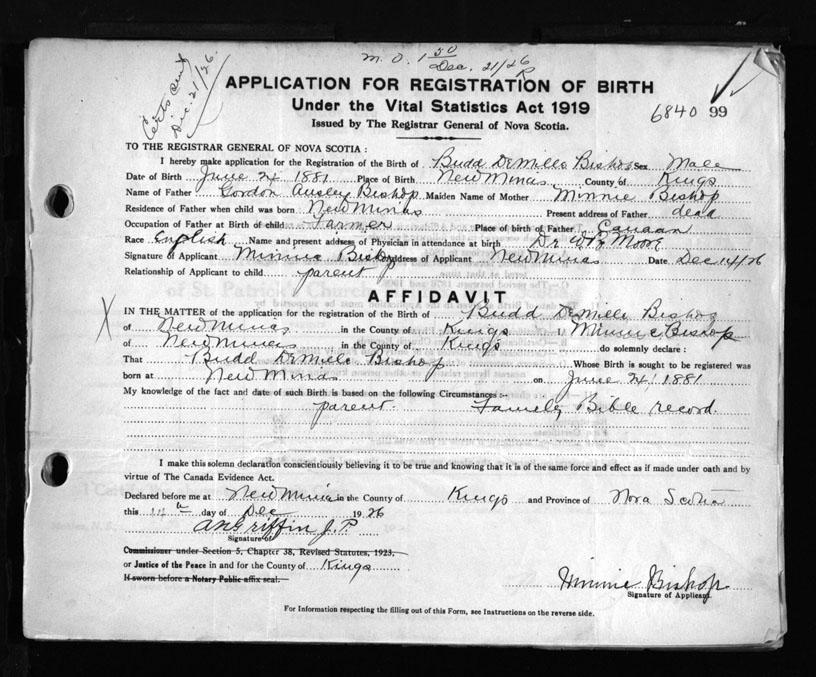 M. O. 1 50
Dec. 21/26
Certs sent
Dec. 21/26.
APPLICATION FOR REGISTRATION OF BIRTH
Under the Vital Statistics Act 1919
6840 99
Issued by The Registrar General of Nova Scotia.
TO THE REGISTRAR GENERAL OF NOVA SCOTIA :
I hereby make application for the Registration of the Birth of Budd DeMille Bishop Sex Male
Date of Birth June 24 1881 Place of Birth New Minas County of Kings
Name of Father Gordon Ansley Bishop Maiden Name of Mother Minnie Bishop
Residence of Father when child was born New Minas Present address of Father dead
Occupation of Father at Birth of child Farmer Place of birth of Father Canaan
Race English Name and present address of Physician in attendance at birth Dr Moore
Signature of Applicant Minnie Bishop Address of Applicant New Minas Date Dec 14/26
Relationship of Applicant to child parent
AFFIDAVIT
X
IN THE MATTER of the application for the registration of Birth of Budd DeMille Bishop
of New Minas in the County of Kings I Minnie Bishop
of New Minas in the County of Kings do solemnly declare :
That Budd DeMille Bishop Whose Birth is sought to be registered was
born at New Minas on June 24, 1881
My knowledge of the fact and date of such Birth is based on the following Circumstances :-
parent. Family Bible record.
I make this solemn declaration conscientiously believing it to be true and knowing that it is of the same force and effect as if made under oath and by
virtue of The Canada Evidence Act.
Declared before me at New Minas in the County of Kings and Province of Nova Scotia
this 14th day of Dec 1926
Griffin J. P.
Signature of
Commissioner under Section 5, Chapter 38, Revised Statutes, 1923.
or Justice of the Peace in and for the County of Kings
If sworn before a Notary Public affix seal.
Minnie Bishop
Signature of Applicant
For Information respecting the filling out of this Form, see Instructions on the reverse side.